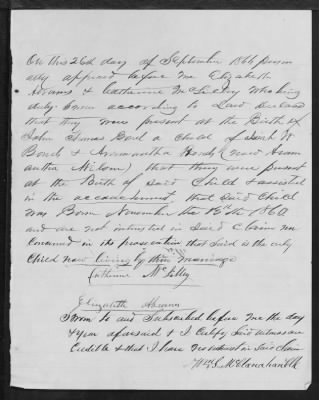 On this 26th day of September 1866 person
ally appeared before me Elizabeth
Adams & Catharine McSibley who being
duly sworn according to Law declare
that they were present at the Birth of
John Thomas Bond a child of W
Bond & Hendy (now Aram
antha Wilson) that they were present
at the Birth of said Child & assisted
in the that said Child
was Born November the 13th 1860
and are not intrested in said Claim nor
concerned in its prosecution that said is the only
Child now living by this marriage
Catharine McSibley
Elizabeth Adams
Sworn to and Subscribed before me the day
& year aforesaid & I Certify said witnesses are
Credible & that I have no interest in said Claim
Wm S. McClanahan Clk